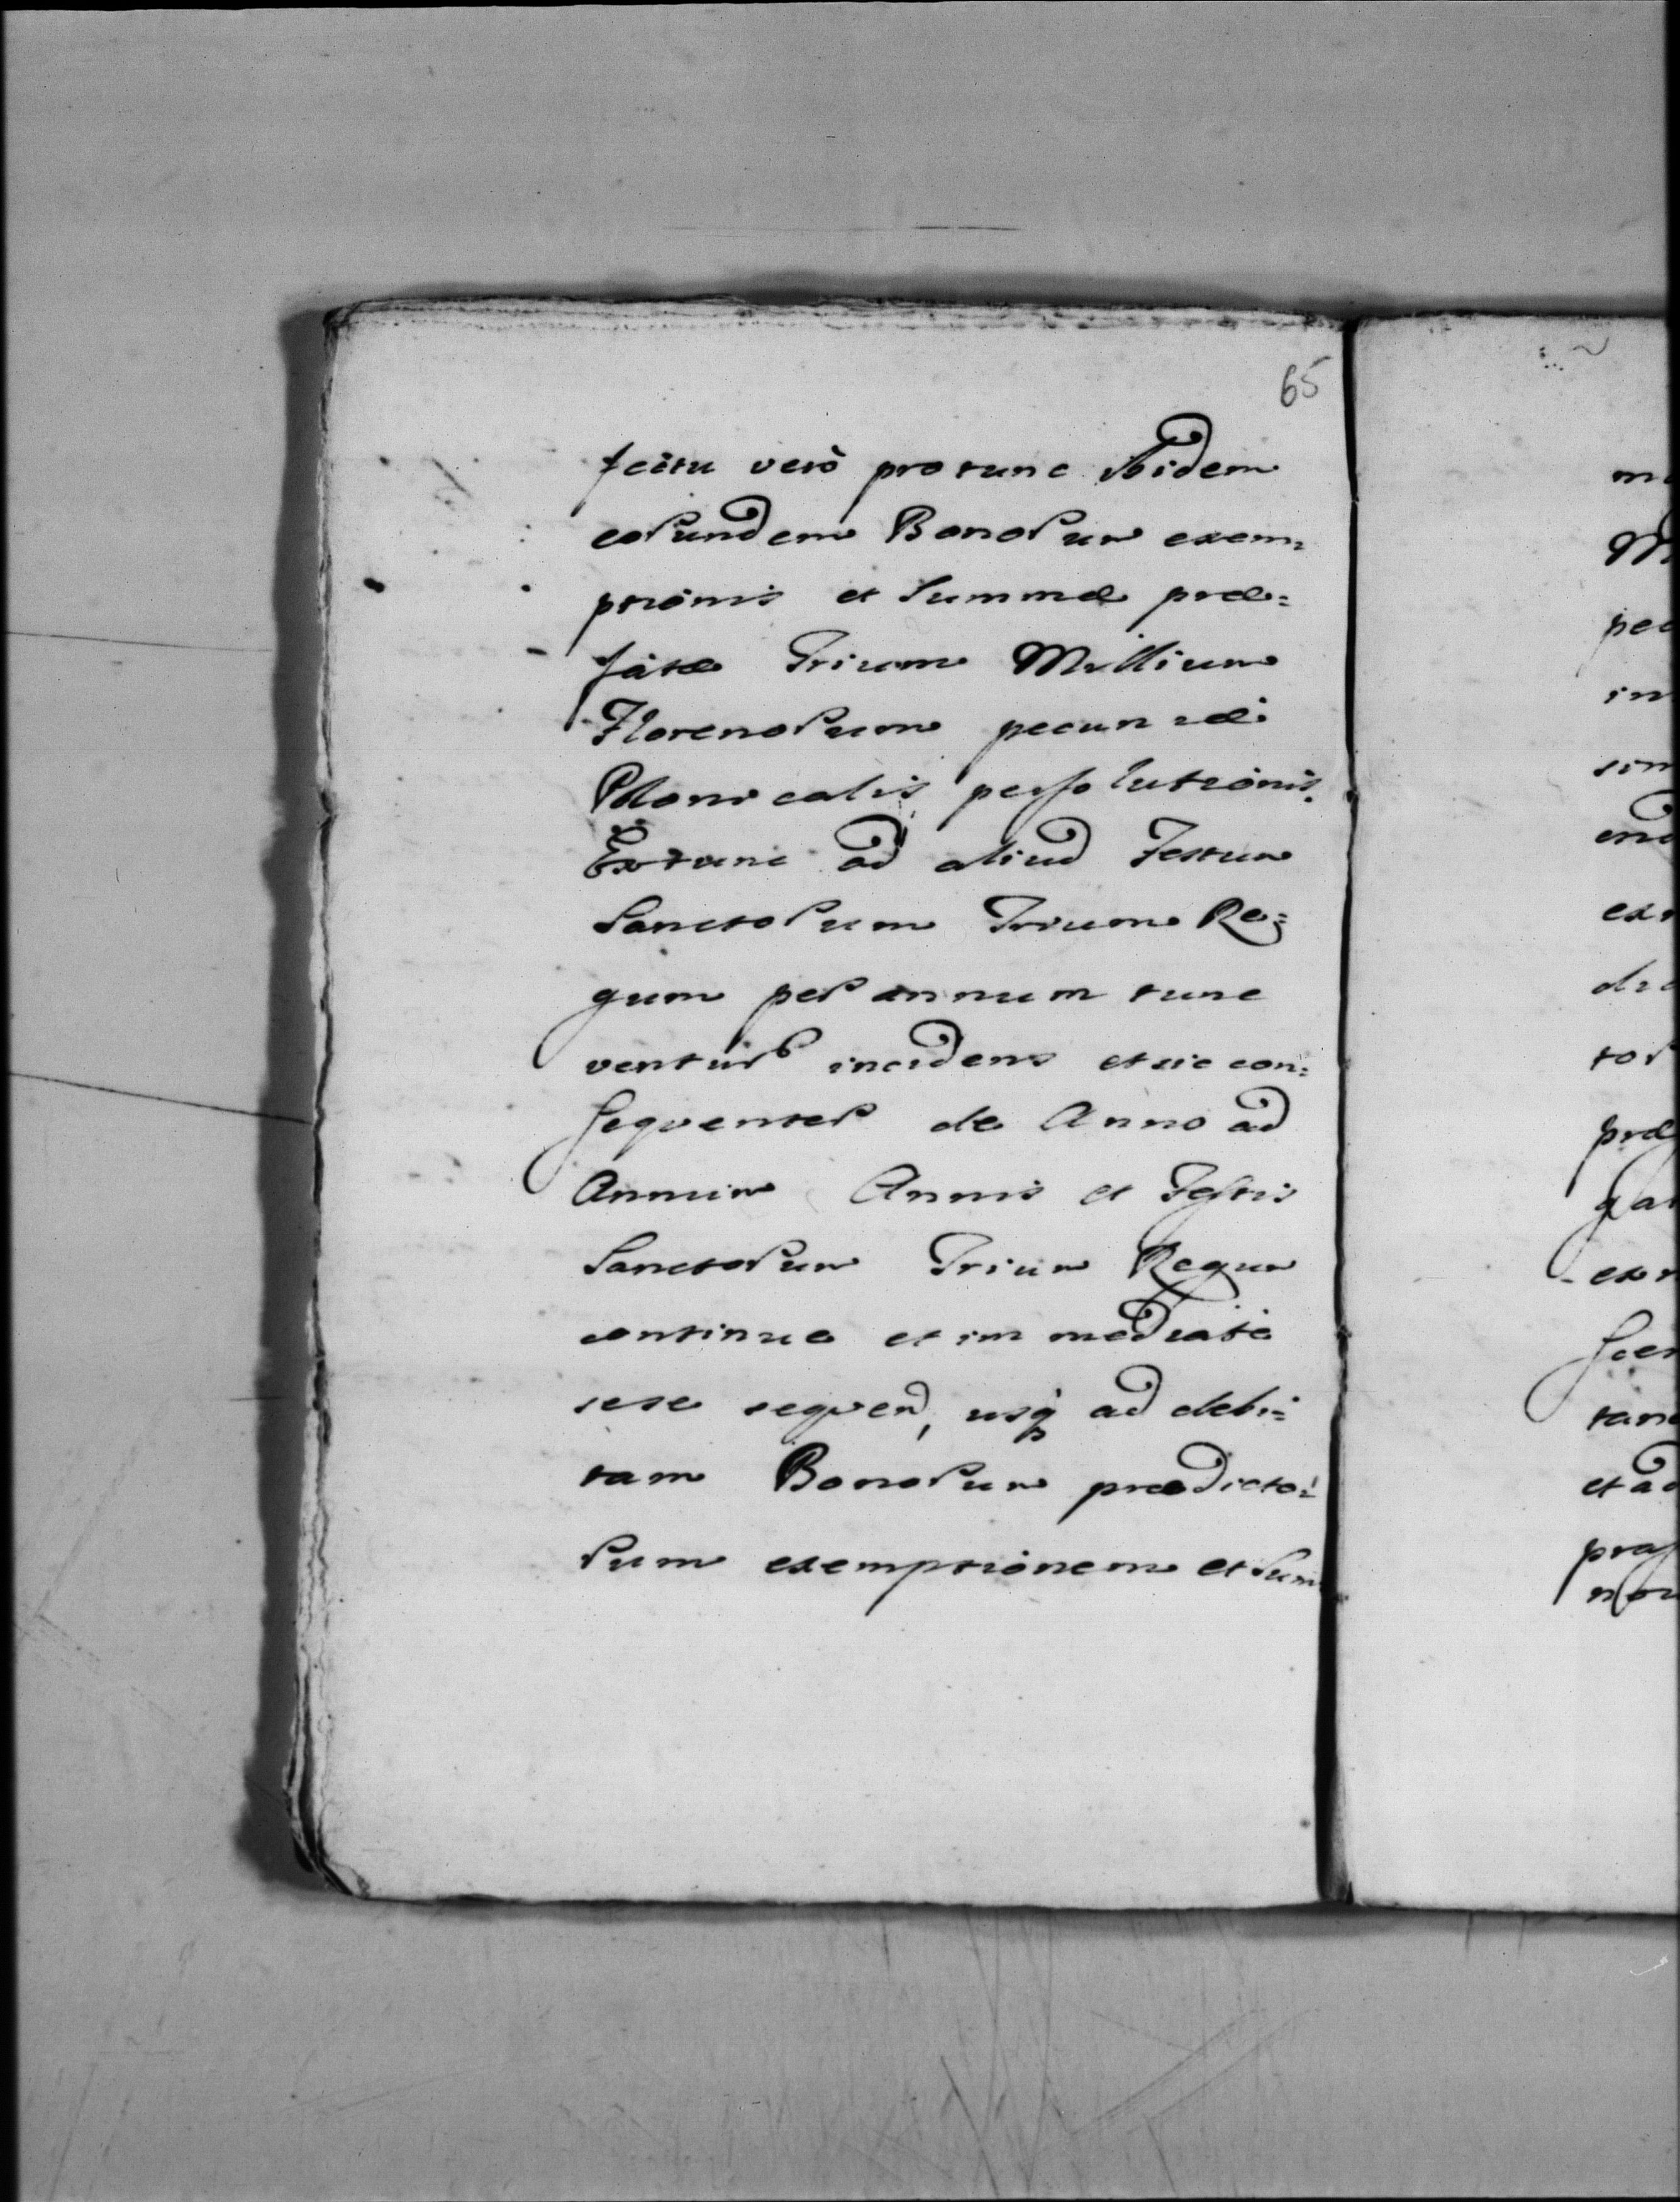 65
fectu verò protunc ibidem
eorundem Bonorum exem=
ptionis et Summæ præ=
fatæ Trium Millium
Florenorum pecuniæ
Polonicalis persolutionis.
Extunc ad aliud Festum
Sanctorum Trium Re=
gum per annum tunc
ventur incidens et sic con=
sequenter de Anno ad
Annum Annis et Festis
Sanctorum Trium Regum
continue et immediatè
sese sequen, usq ad debi=
tam Bonorum prædicto=
rum exemptionem et Sum